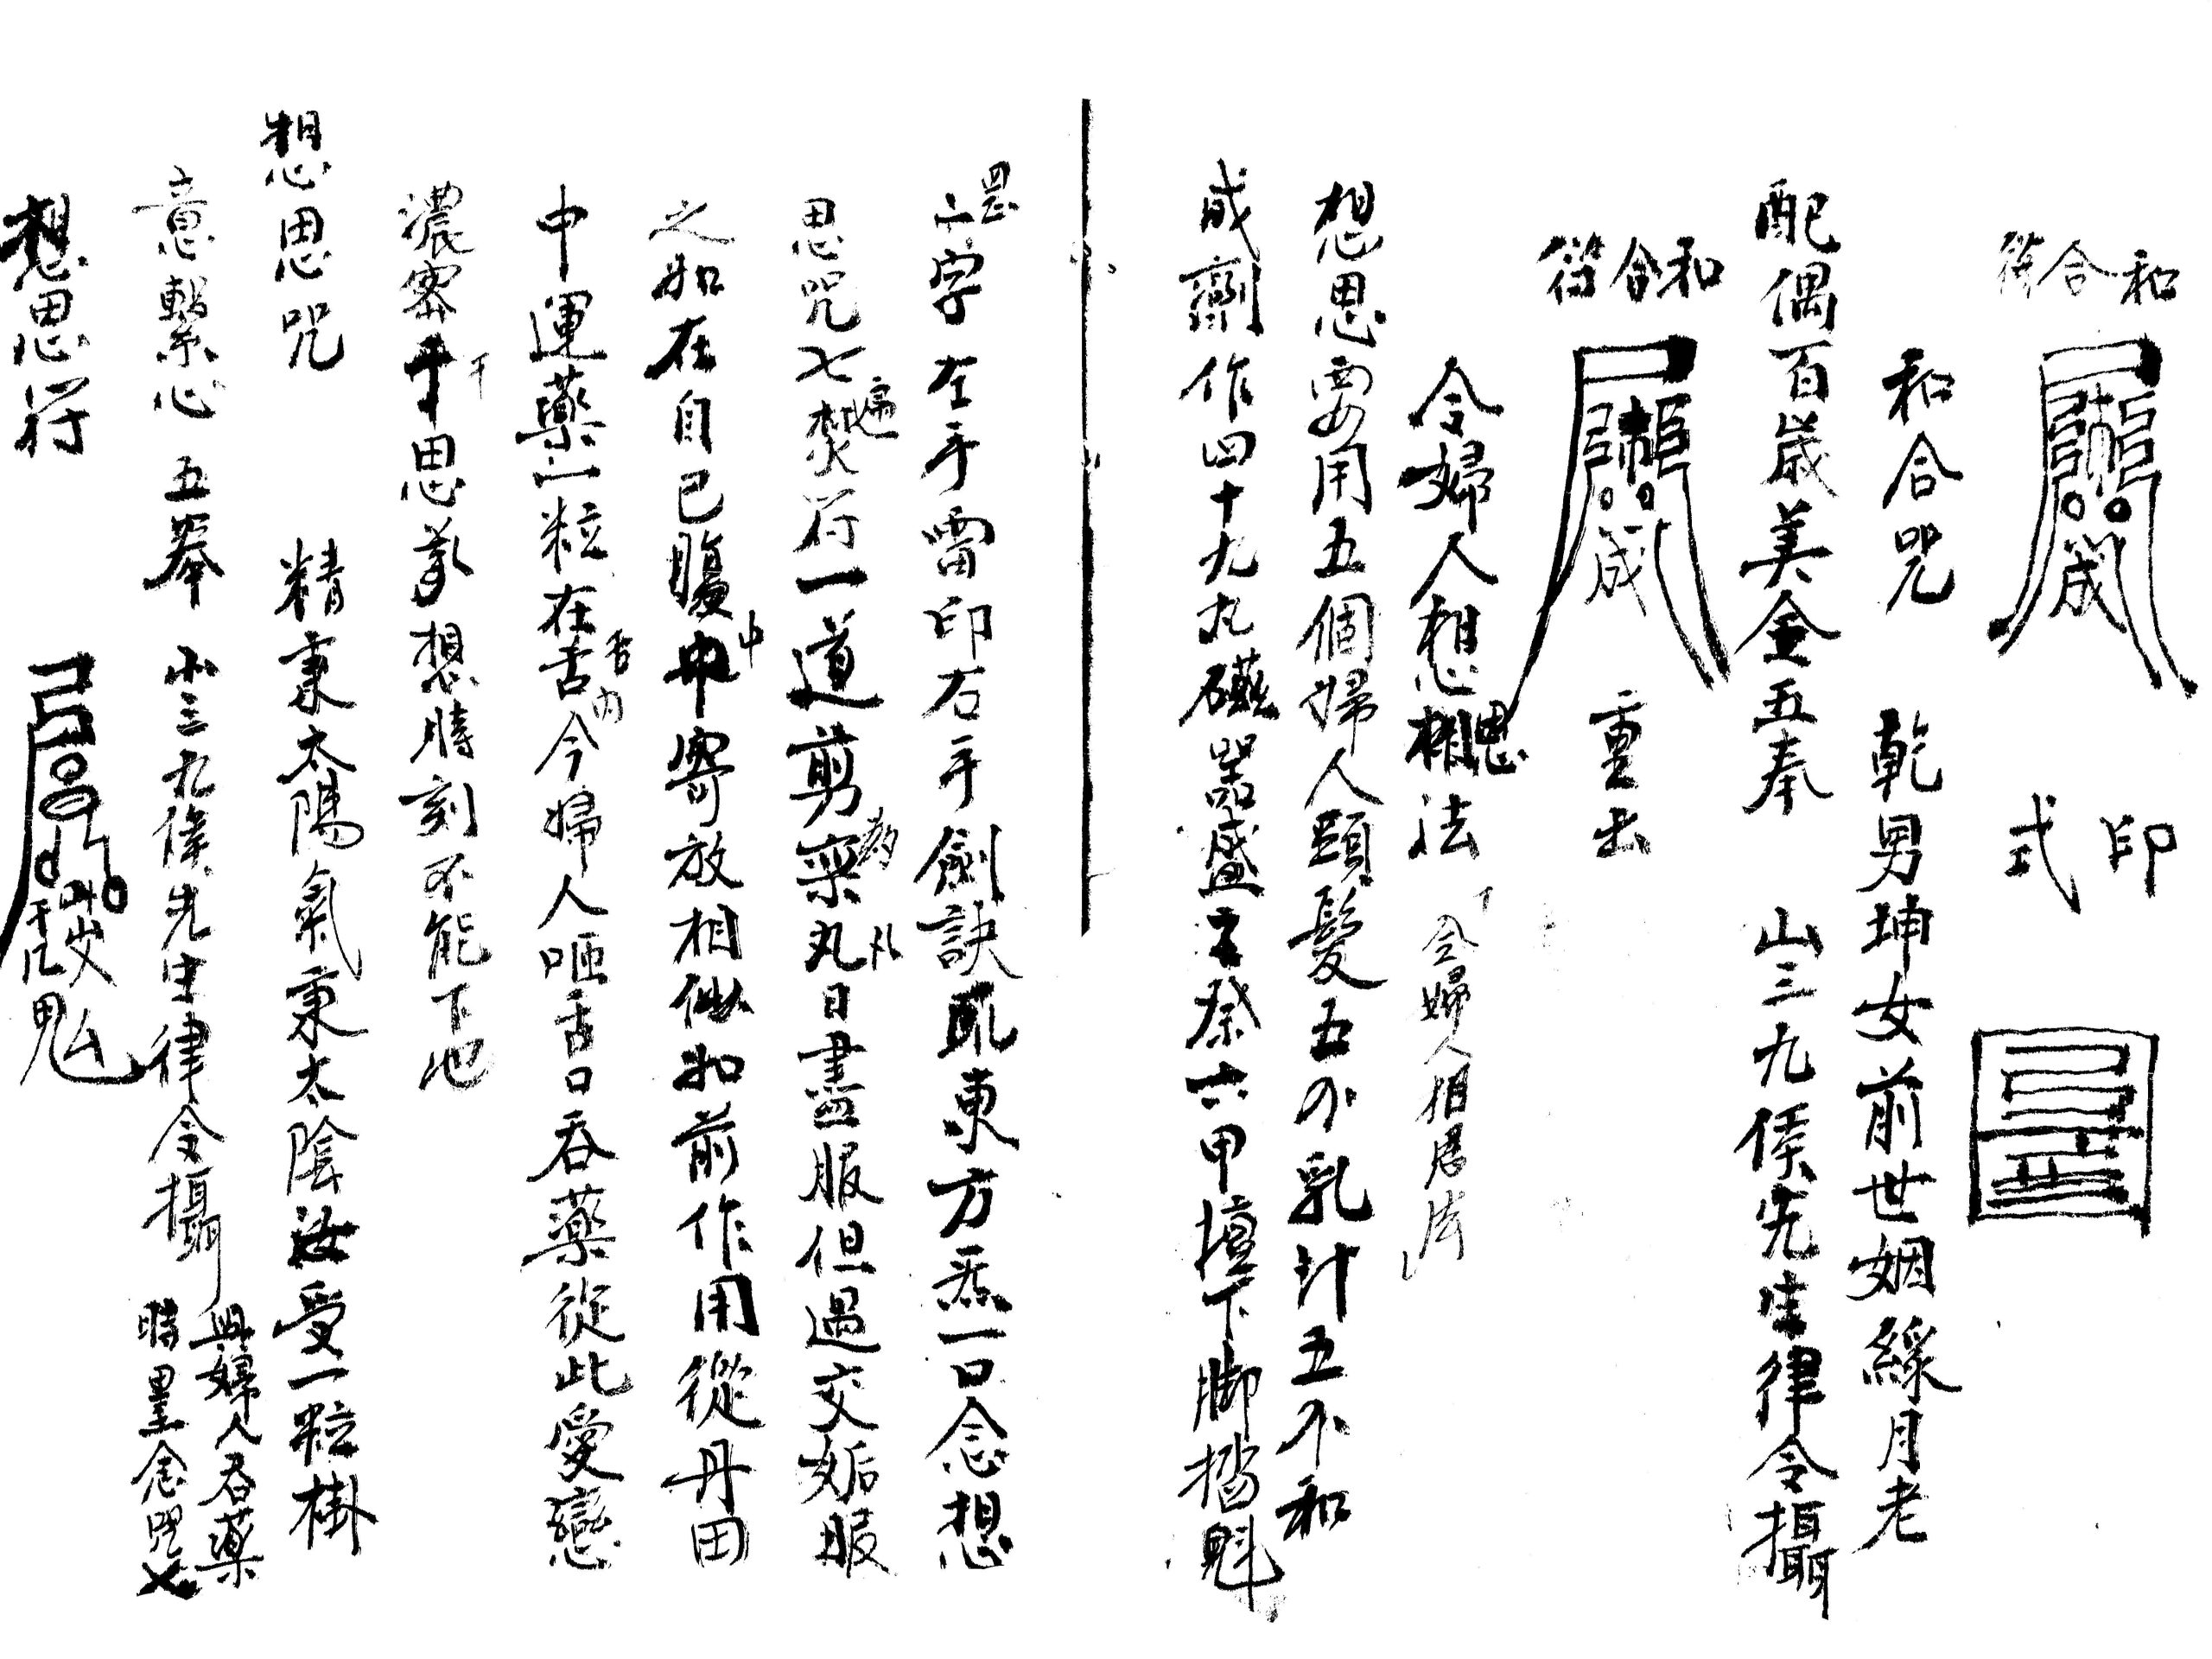 和合符
印式
和合咒　乾男坤女前世姻緣月老
配偶百歲美金五奉　山三九侯先生律令攝
和合符
重出
令婦人想思法　令婦人相思法
想思要用五個婦人頭髮五個乳汁五個和
成劑作四十九丸磁器盛主祭六甲壇下腳踏魁
罡二字左手雷印右手劍訣取東方炁一口念想
思咒七遍焚符一道剪藥丸日盡服但過交姤服
之如在自己腹中寄放相似如前作用從丹田
中運藥一粒在舌內今婦人咂舌口吞藥從此愛戀
濃密千思萬想時刻不能下也
想思咒　精秉太陽氣秉太陰汝受一粒掛
意繫心　五奉　山三九侯先生律令攝　與婦人吞藥
時默念咒七
想思符